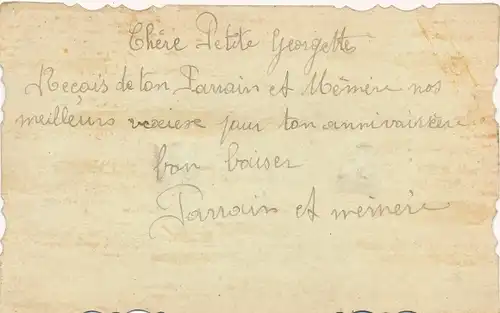 Chère Petite Georgette
Reçois de ton Parrain et Mémère nos
meilleurs pour ton annivairsere
bon baiser
Parrain et mémère